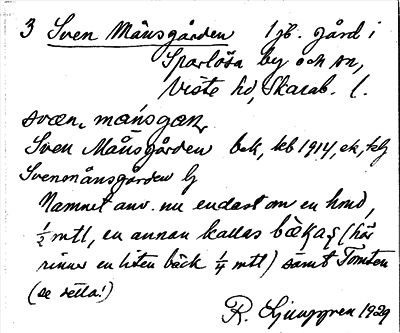 3 Sven Månsgården 1 jb. gård i
Sparlösa by och sn,
Viste hd, Skarab. l.
svæn, mánsgaɳ,
Sven Månsgården bek, kb 1914, ek,
Svensmånsgården lj
Namnet anv. nu endast om en hmd,
½ mtl, en annan kallas bækaʂ (här
rinner en liten bäck ¼ mtl) samt Tomten
(se detta!)
R. Ljunggren 1929